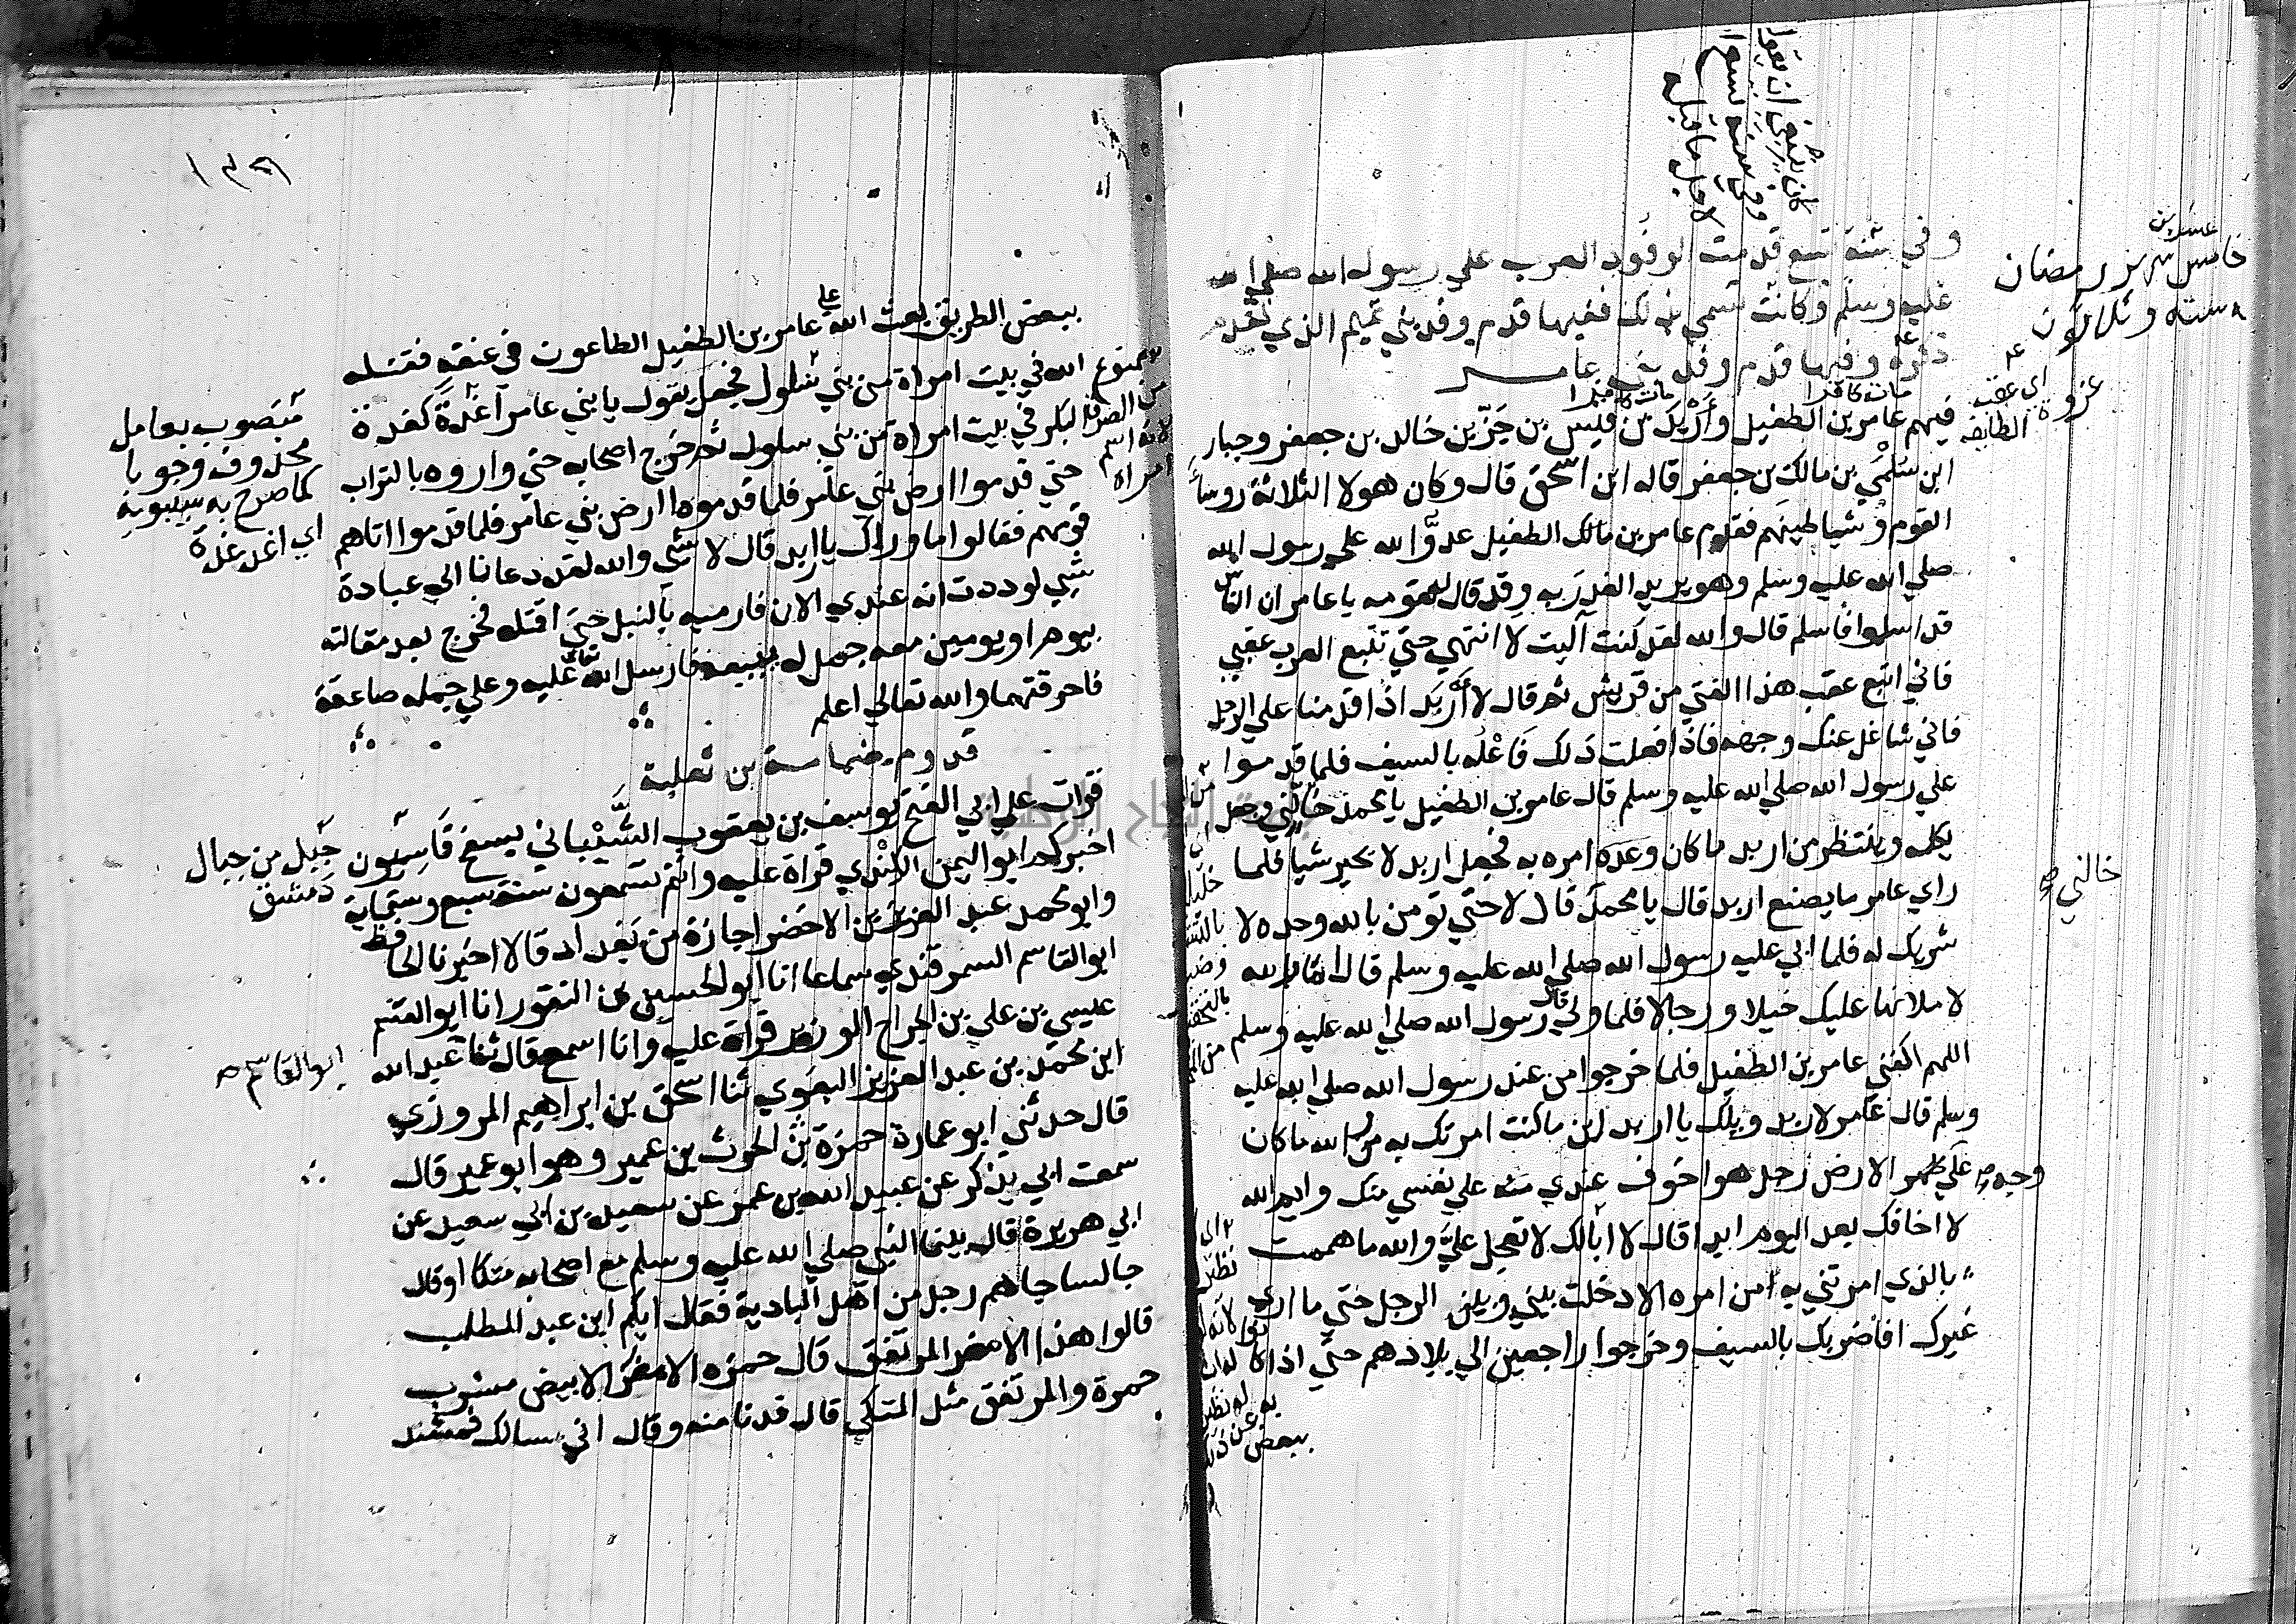 كان ينبغي ان يقول
وفي سنة تسع
لاجل ما قبله
وفي سنة تسع قدمت الوفود العرب علي رسول الله صلي الله
عليه وسلم وكانت تسمي بذلك ففيها قدم وفد بني تميم الذي تقدم
ذكره وفيها قدم وفد بني عامر
مات كافرا
مات كافرا
فيهم عامر بن الطفيل وأربد بن قيس بن جزء بن خالد بن جعفر وجبار
ابن سلمي بن مالك بن جعفر قاله ابن اسحق قال وكان هولا الثلاثة روساء
القوم وشياطينهم فقدم عامر بن مالك الطفيل عدو الله علي رسول الله
صلي الله عليه وسلم وهو يريد الغدر به وقد قال له قومه يا عامر ان الناس
قد اسلموا فاسلم قال والله لقد كنت آليت لا انتهي حتي تتبع العرب عقبي
فاني اتبع عقب هذا الفتي من قريش ثم قال لأربد اذا قدمنا علي الرجل
فاني شاغل عنك وجهه فاذا فعلت ذلك فاعله بالسيف فلما قدموا
علي رسول الله صلي الله عليه وسلم قال عامر بن الطفيل يا محمد خالني وجعل
يكلمه وينتظر من اربد ما كان وعده امره به فجعل اربد لا يحير شيا فلما
راي عامر ما يصنع اربد قال يا محمد قال لا حتي تومن بالله وحده لا
شريك له فلما ابي عليه رسول الله صلي الله عليه وسلم قال اما والله
لاملانها عليك خيلا ورجالا فلما ولي قال رسول الله صلي الله عليه وسلم
اللهم اكفني عامر بن الطفيل فلما خرجوا من عند رسول الله صلي الله عليه
وسلم قال عامر لاربد ويلك يا اربد اين ما كنت امرتك به والله ما كان
علي ظهر الارض رجل هو اخوف عندي منه علي نفسي منك وايم الله
لا اخافك بعد اليوم ابدا قال لا ابالك لا تعجل علي والله ما هممت
بالذي امرتني به من امره الا دخلت بيني وبين الرجل حتي ما اري
غيرك افاضربك بالسيف وخرجوا راجعين الي بلادهم حتي اذا كانوا
عشرين
خامس رمضان
سنة وثلاثون
اي عقب
غزوة الطايف
خالني صح
وجه
نظير
بعض ذلك
١٣٩
ببعض الطريق بعث الله علي عامر بن الطفيل الطاعون في عنقه فقتله
الله في بيت امراة من بني سلول فجعل يقول يا بني عامر أغدة كغدة
البكر في بيت امراة من بني سلول ثم خرج اصحابه حتي واروه بالتراب
حتي قدموا ارض بني عامر فلما قدموا ارض بني عامر فلما قدموا اتاهم
قومهم فقالوا ما وراك يا اربد قال لا شي والله لقد دعانا الي عبادة
شي لوددت انه عندي الان فارميه بالنبل حتي اقتله فخرج بعد مقالته
بيوم او يومين معه جمل له يبيعه فارسل الله تعالي عليه وعلي جمله صاعقة
فاحرقتهما والله تعالي اعلم
ممنوع
من الصرف
لانه اسم
امراة
منصوب بعامل
محذوف وجوبا
كما صرح به سيبويه
اي اغد غدة
قدوم ضمامة بن ثعلبة
قرات علي ابي الفتح يوسف بن يعقوب الشيباني بسفح قاسيون جبل من جبال
دمشق
اخبركم ابو اليمن الكندي قراة عليه وانتم تسمعون سنة سبع وستماية
وابو محمد عبد العزيز بن الاخضر اجازة من بغداد قالا اخبرنا الحافظ
ابو القاسم السمرقندي سماعا انا ابو الحسين بن النقور انا ابو القسم
عيسي بن علي بن الجراح الوزير قراة عليه وانا اسمع قال ثنا عبد الله
ابو القاسم صح
ابن محمد بن عبد العزيز البغوي ثنا اسحق بن ابراهيم المروزي
قال حدثني ابو عمارة حمزة بن الحرث بن عمير وهو ابو عمير قال
سمعت ابي يذكر عن عبيد الله بن عمر عن سعيد بن ابي سعيد عن
ابي هريرة قال بينما النبي صلي الله عليه وسلم مع اصحابه متكا او قال
جالسا جاهم رجل من اهل البادية فقال ايكم ابن عبد المطلب
قالوا هذا الامغر المرتفق قال حمزه الامغر الابيض مشرب
حمرة والمرتفق مثل المتكي قال فدنا منه وقال اني سالك فمشتد